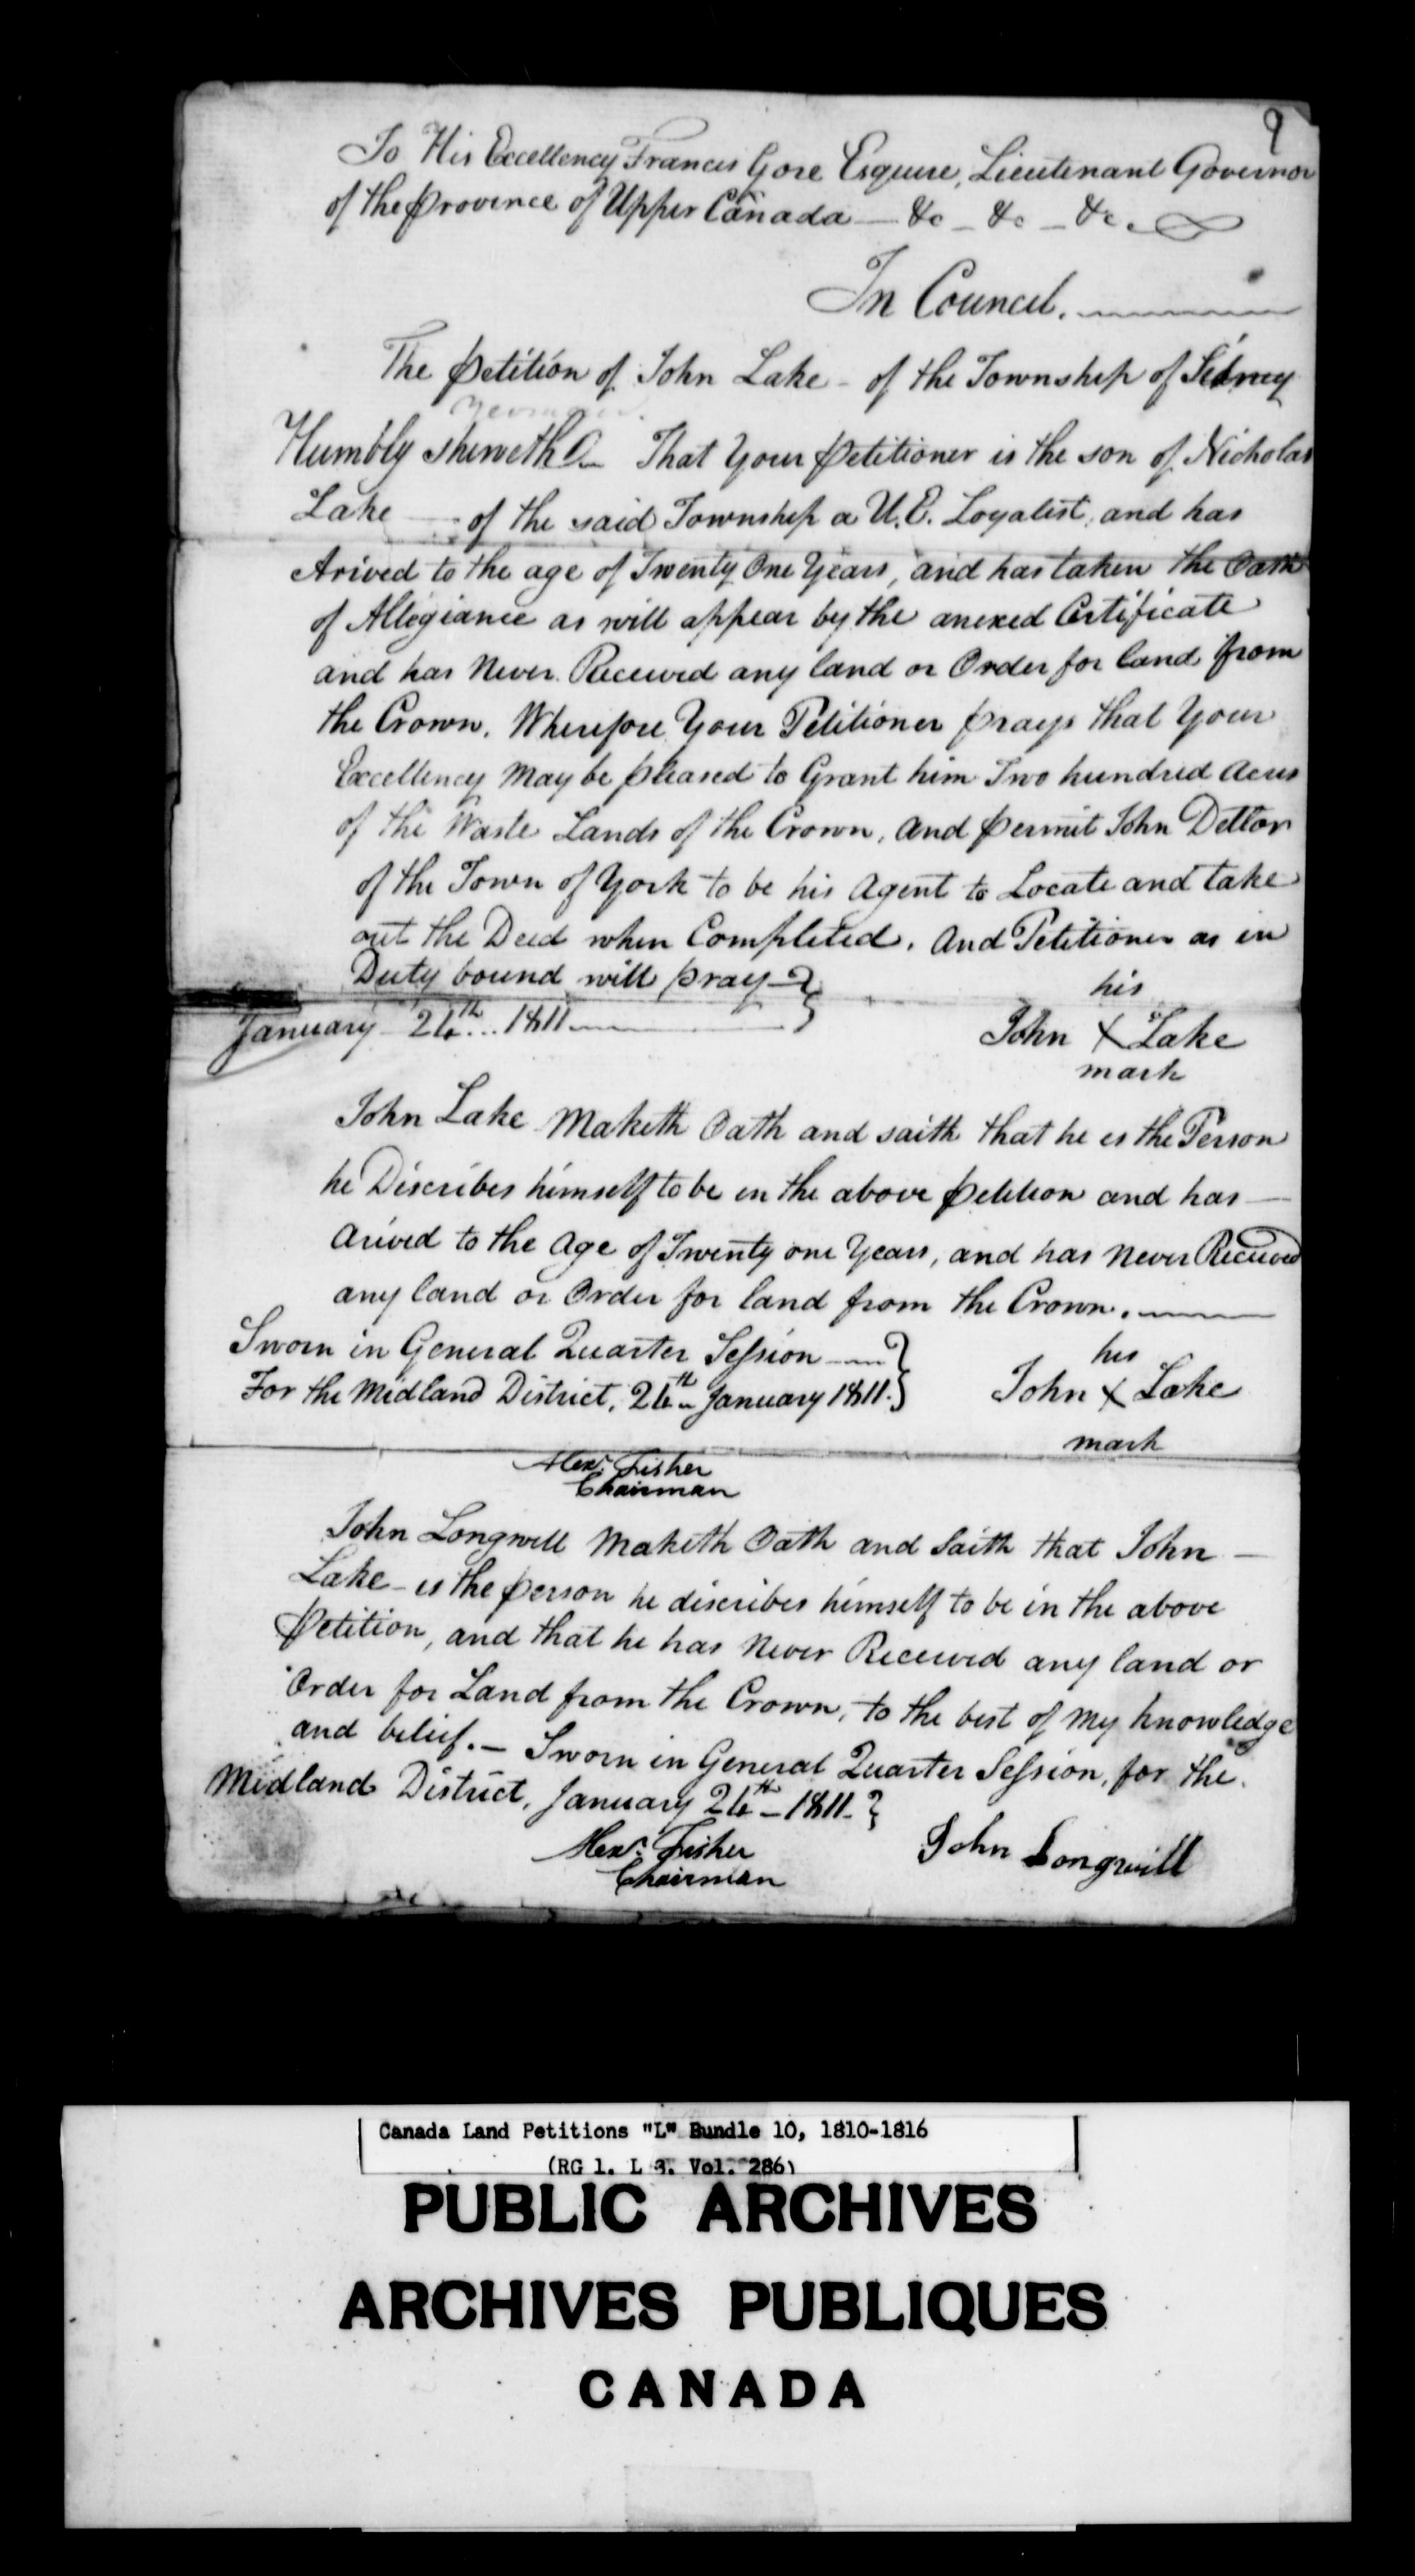 9
To His Excellency Francis Gore Esquire, Lieutenant Governor
of the Province of Upper Canada — &c — &c — &c.
In Council.
The Petition of John Lake - of the Township of Sidney
yeoman.
Humbly sheweth That Your Petitioner is the son of Nicholas
Lake — of the said Township a U.E. Loyalist, and has
Arived to the age of Twenty One Years, and has taken the Oath
of Allegiance as will appear by the anexed Certificate
and has Never Received any land or Order for land from
the Crown. Wherefore Your Petitioner prays that Your
Excellency May be pleased to Grant him Two hundred Acres
of the Waste Lands of the Crown, and permit John Detlor
of the Town of York to be his Agent to Locate and take
out the Deed when Completed. And Petitioner as in
Duty bound will pray
January 26th 1811
his
John X Lake
mark
John Lake Maketh Oath and saith that he is the Person
he Discribes himself to be in the above Petition and has —
Arived to the Age of Twenty one Years, and has Never Received
any land or Order for land from the Crown.
Sworn in General Quarter Session
For the Midland District, 26th January 1811.
his
John X Lake
mark
Alexr. Fisher
Chairman
John Longwell Maketh Oath and Saith that John —
Lake - is the person he discribes himself to be in the above
Petition, and that he has Never Received any land or
Order for Land from the Crown, to the best of My knowledge
and belief. — Sworn in General Quarter Session, for the
Midland District, January 26th - 1811.
Alexr. Fisher
Chairman
John Longwill
Canada Land Petitions "L" Bundle 10, 1810-1816
(RG 1. L 3. Vol. 286)
PUBLIC ARCHIVES
ARCHIVES PUBLIQUES
CANADA